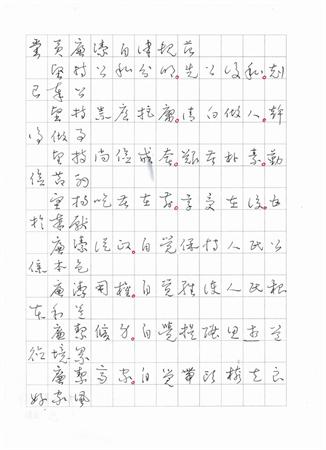 党员廉洁自律规范
坚持公私分明。先公后私，克
己奉公
坚持崇廉拒腐。清白做人。干
净做事
坚持尚俭戒奢。艰苦朴素。勤
俭节约
坚持吃苦在前。享受在后。甘
于奉献
廉洁从政。自觉保持人民公
仆本色
廉洁用权。自觉维护人民根
本利益
廉洁修身。自觉提升思想道
德境界
廉洁齐家。自觉带头树立良
好家风